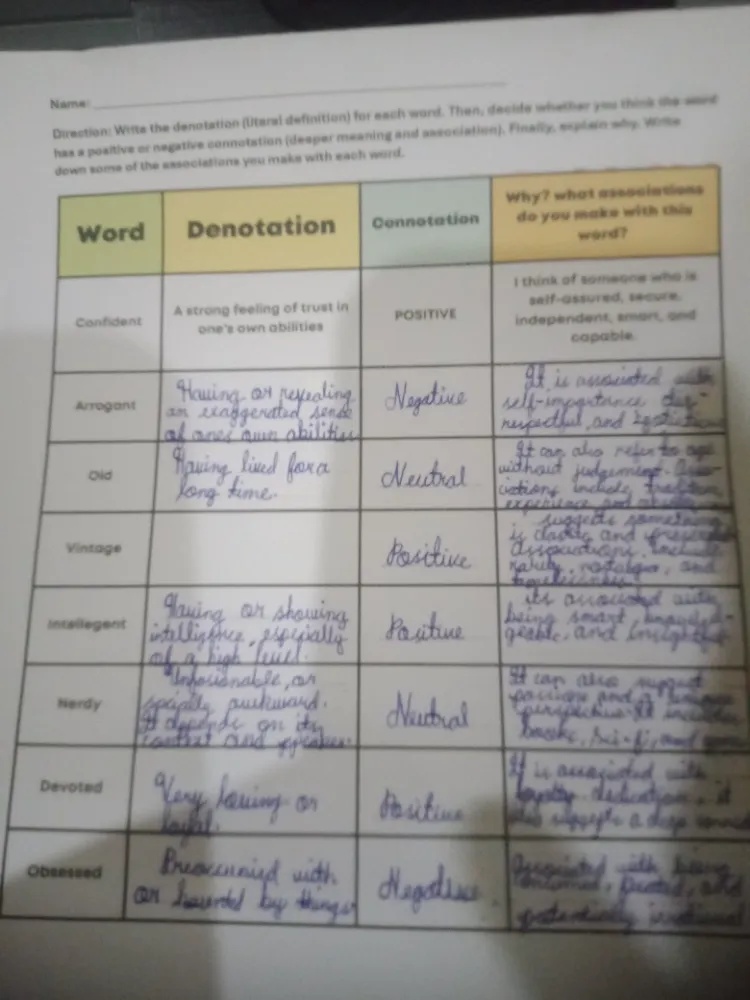 Name:
Direction: Write the denotation (literal definition) for each word. Then, decide whether you think the word
has a positive or negative connotation (deeper meaning and association). Finally, explain why. Write
down some of the associations you make with each word.
Word
Denotation
Connotation
Why? what associations
do you make with this
word?
Confident
A strong feeling of trust in
one's own abilities
POSITIVE
I think of someone who is
self-assured, secure,
independent, smart, and
capable.
Arrogant
Having or revealing
an exaggerated sense
of ones own abilities
Negative
It is associated with
self-importance dis-
respectful, and
Old
Having lived for a
long time.
Neutral
It can also refer to age
without judgement. Asso-
ciations include tradition,
experience and
Vintage
Positive
suggests something
is classic and
Associations include
rarity, nostalgia, and
timelessness
Intellegent
Having or showing
intelligence, especially
of a high level.
Positive
its associated with
being smart, knowled-
geable, and insightful
Nerdy
Unfasionable, or
socially awkward.
It depends on its
context and speaker.
Neutral
It can also suggest
passion and a unique
perspective. It includes
books, sci-fi, and
Devoted
Very loving or
loyal.
Positive
It is associated with
loyalty, dedication, it
also suggests a deep
Obsessed
Preoccupied with
or haunted by things
Negative.
Associated with being
consumed, fixated, and
potentially irrational